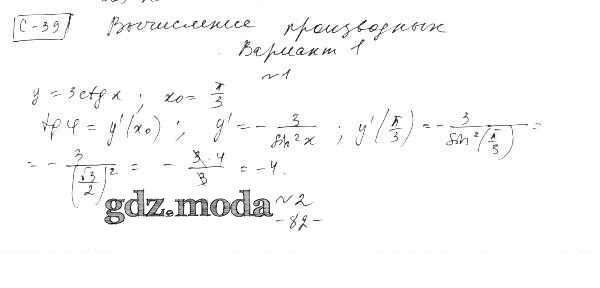 С-39 Вычисление производных
Вариант 1
~1
y = 3ctg x ; x₀ = π/3
tg φ = y'(x₀) ; y' = - 3/sin²x ; y'(π/3) = - 3/sin²(π/3) =
= - 3/(√3/2)² = - 3·4/3 = -4.
gdz.moda
~2
-82-